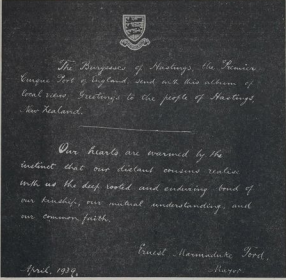 The Burgesses of Hastings, the Premier
Cinque Port of England, send with this album of
local views, Greetings to the people of Hastings,
New Zealand.
Our hearts are warmed by the
instinct that our distant cousins realise
with us the deep rooted and enduring bond of
our kinship, our mutual understanding, and
our common faith.
Ernest Marmaduke Ford.
Mayor.
April, 1939.